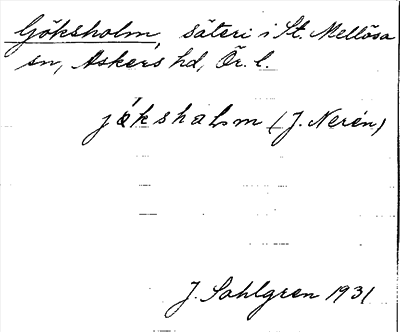 Göksholm, säteri i St. Mellösa
sn, Askers hd, Ör. l.
jökshalm (J. Nerén)
J. Sahlgren 1931